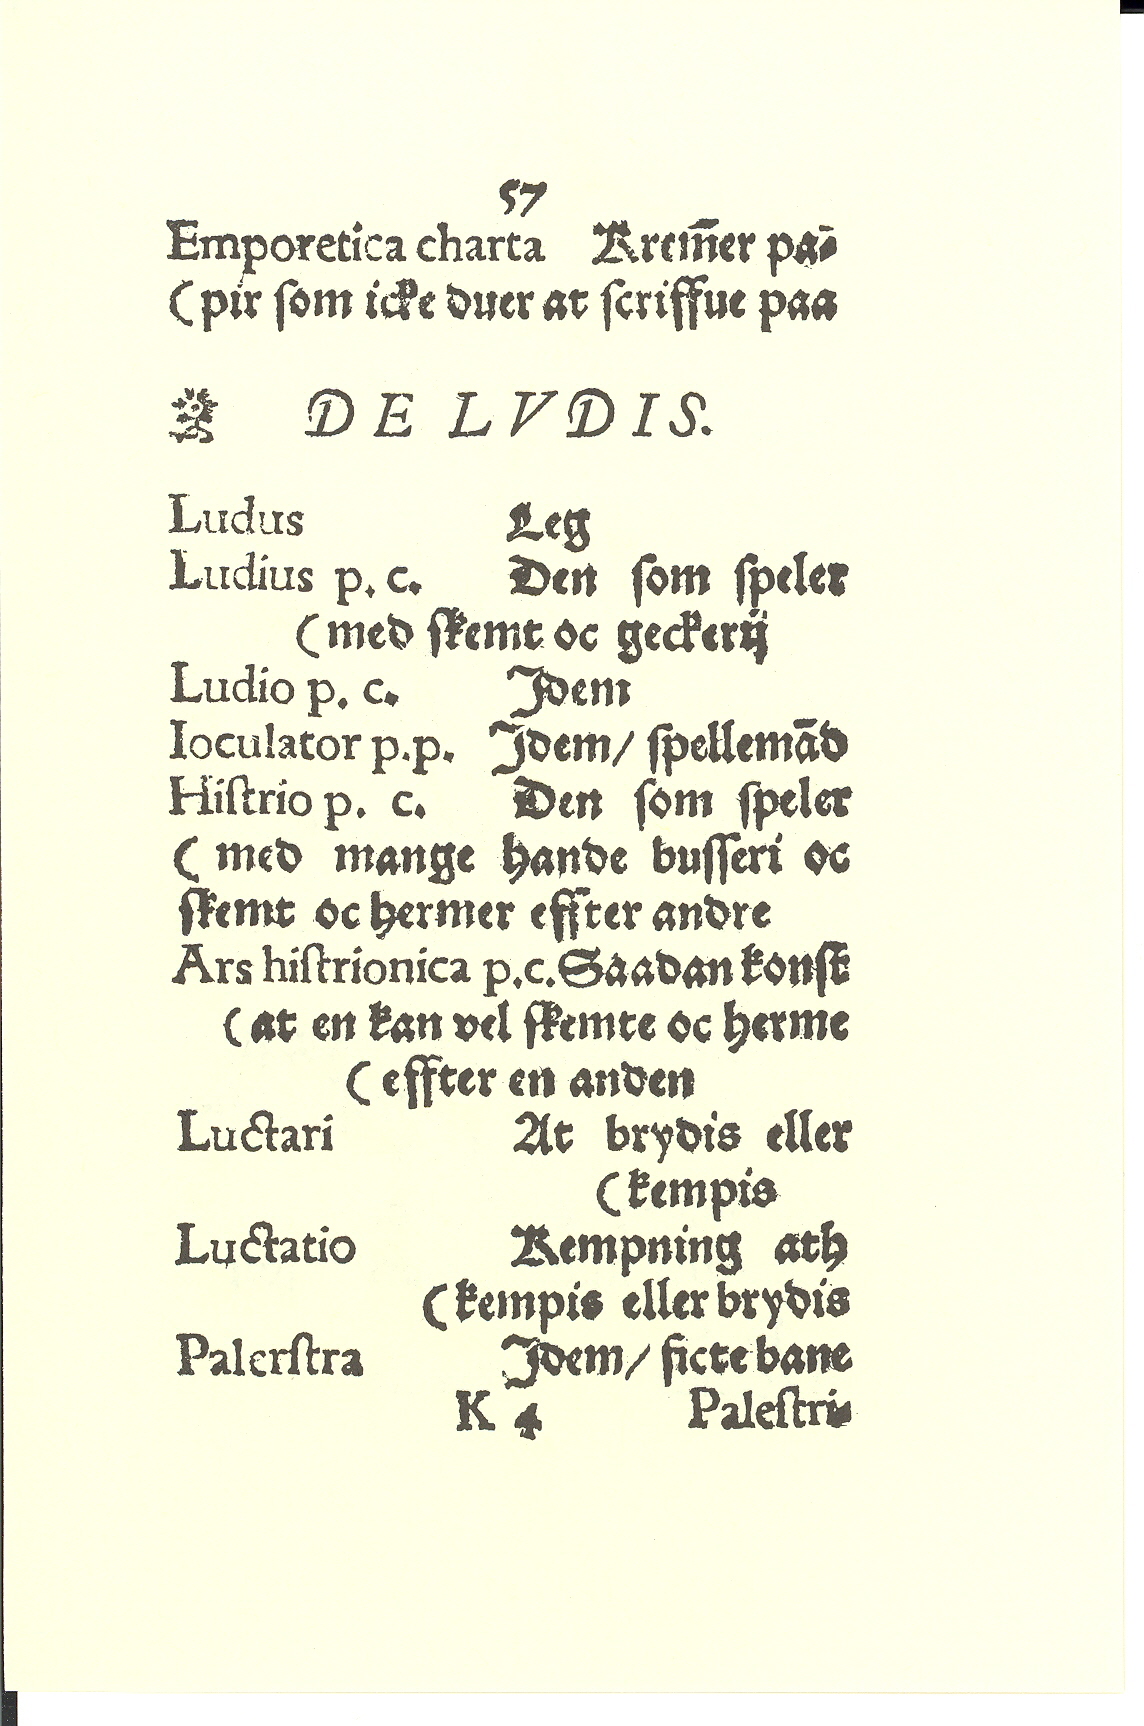 57
Emporetica charta Krem̄er pa-
(pir som icke duer at scriffue paa
DE LVDIS.
Ludus Leg
Ludius p. c. Den som speler
(med skemt oc geckerij
Ludio p. c. Jdem
Ioculator p.p. Jdem/ spellemād
Histrio p. c. Den som speler
(med mange hande busseri oc
skemt oc hermer effter andre
Ars histrionica p.c. Saadan konst
(at en kan vel skemte oc herme
(effter en anden
Luctari At brydis eller
(kempis
Luctatio Kempning ath
(kempis eller brydis
Palerstra Jdem/ ficte bane
K 4 Palestri-